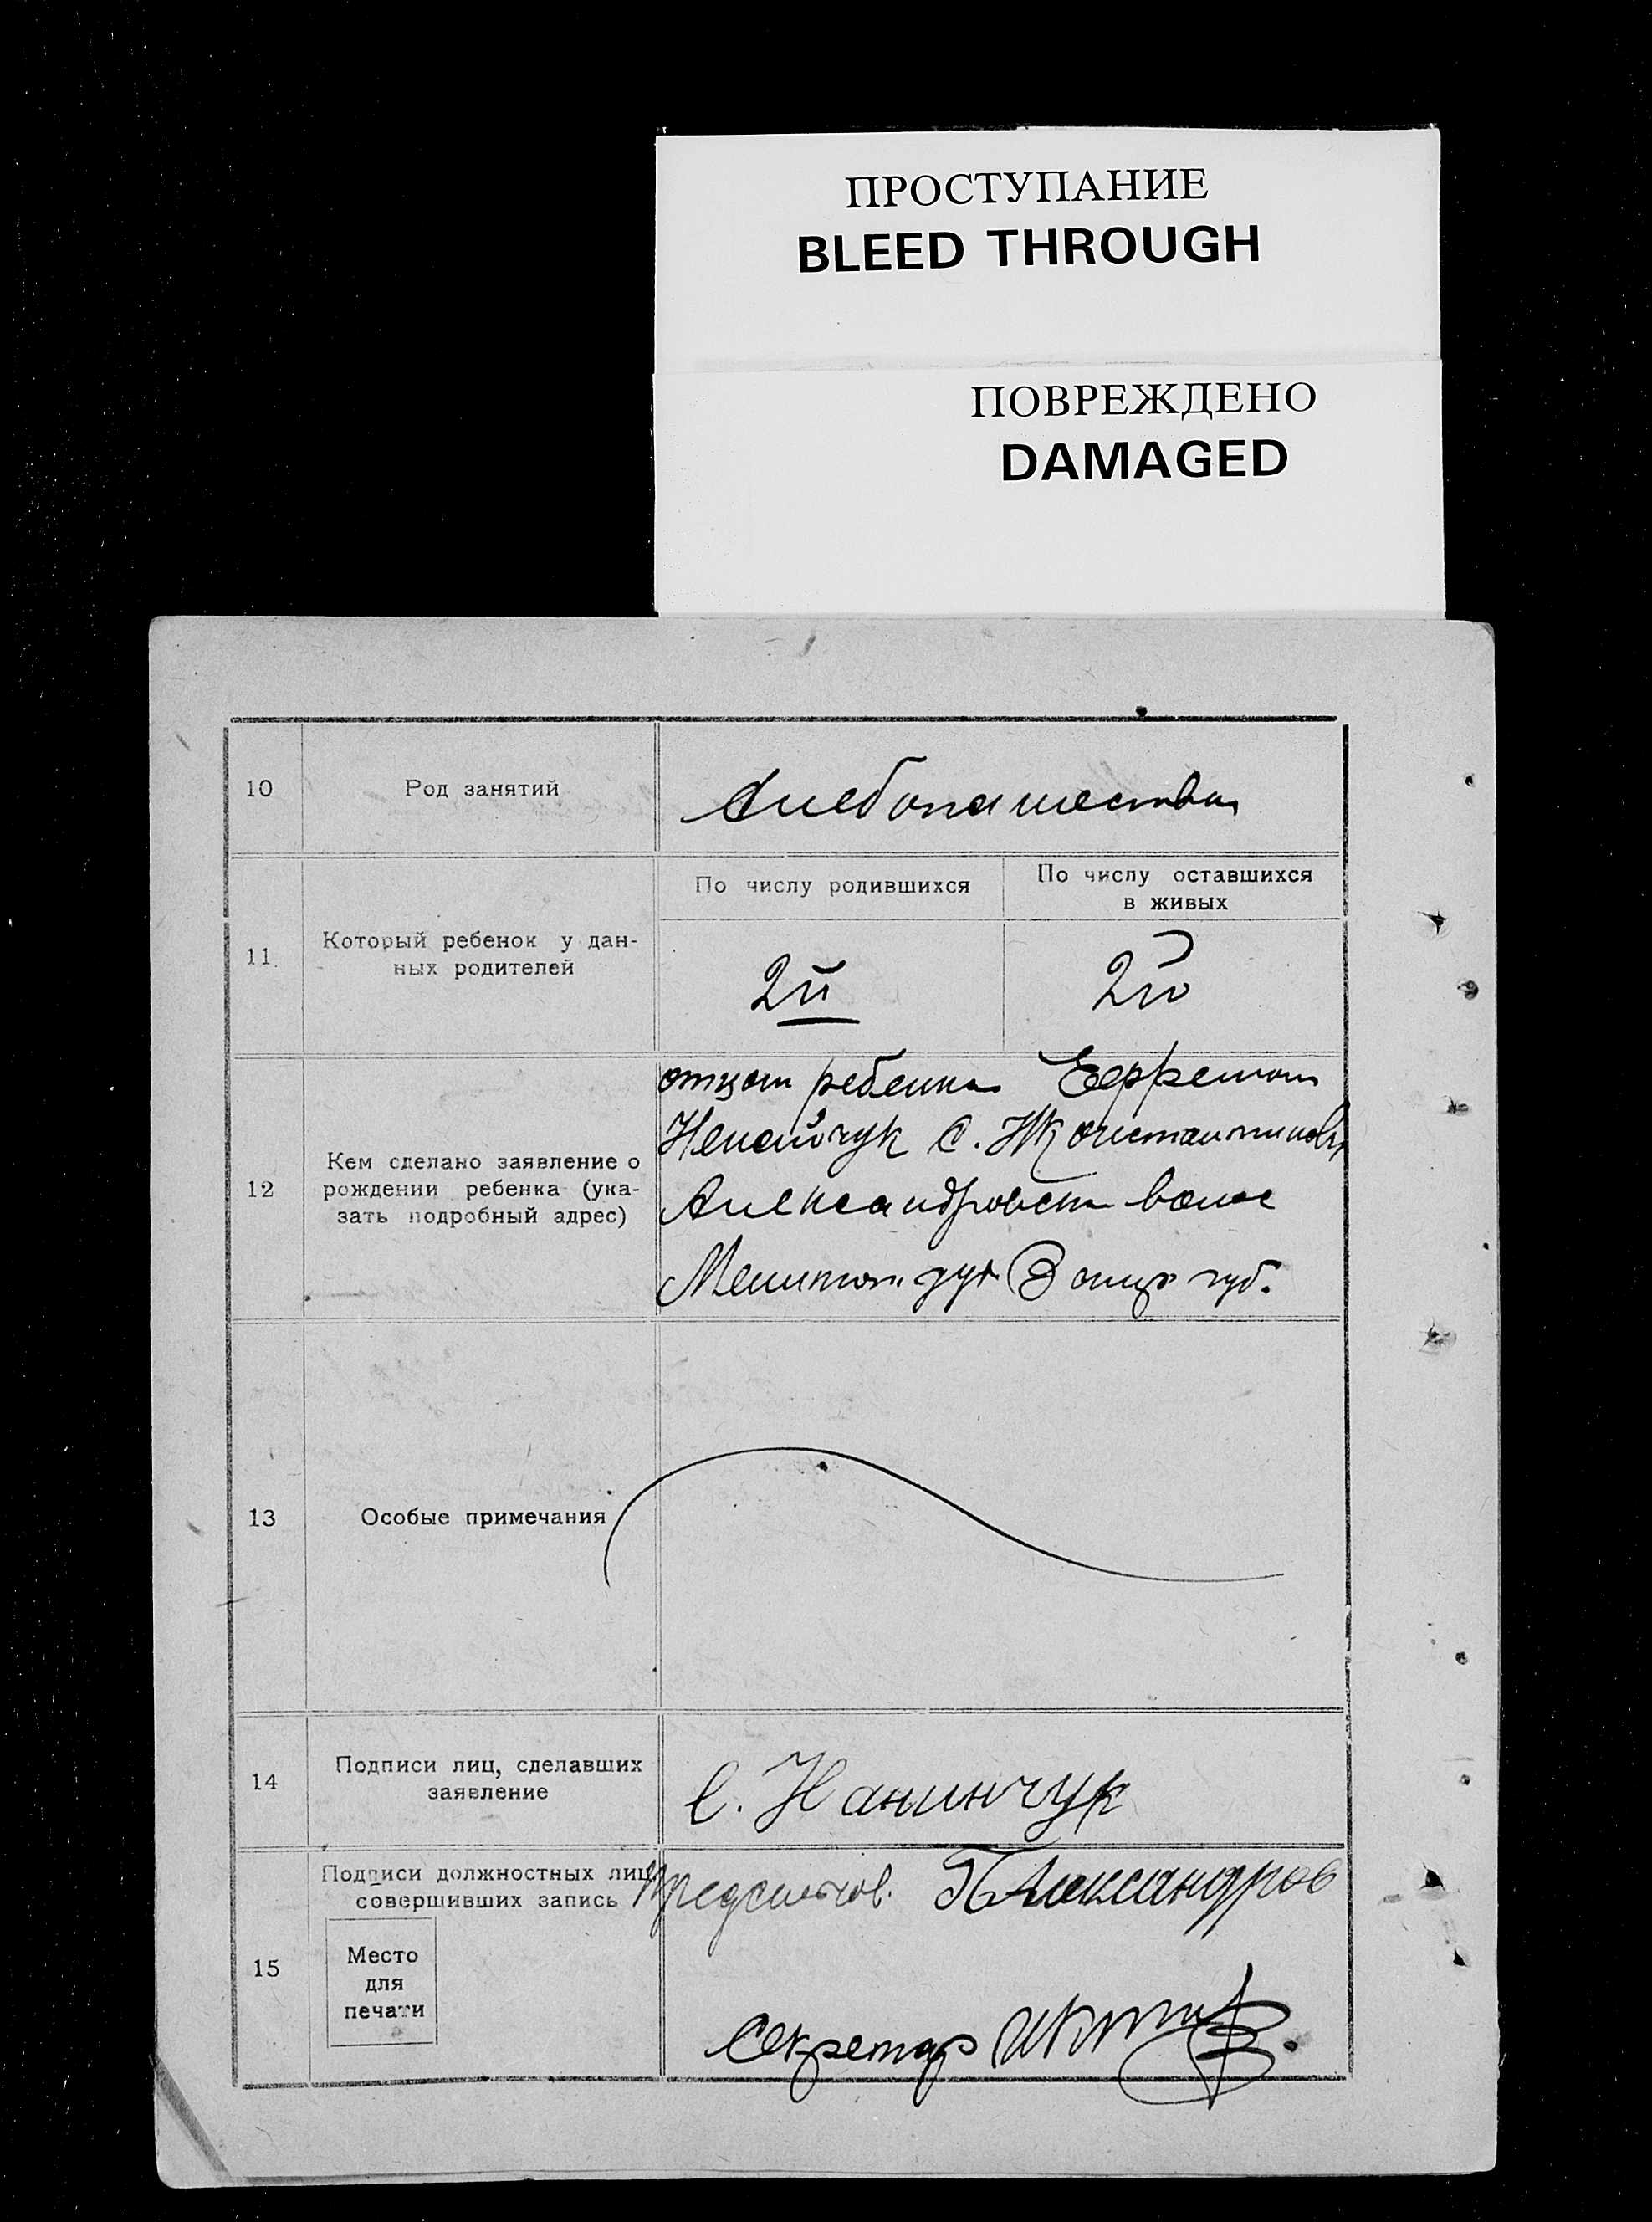 ПРОСТУПАНИЕ
BLEED THROUGH
ПОВРЕЖДЕНО
DAMAGED
10
Род занятий
Хлебопашество
11
Который ребенок у дан-
ных родителей
По числу родившихся
По числу оставшихся
в живых
2й
2й
12
Кем сделано заявление о
рождении ребенка (ука-
зать подробный адрес)
отцом ребенка
с. Константиновка
Александровск волос
Мелитоп. Запор губ.
13
Особые примечания
14
Подписи лиц, сделавших
заявление
Е. Нанинчук
15
Подписи должностных лиц,
совершивших запись
Место
для
печати
Александров
Секретар